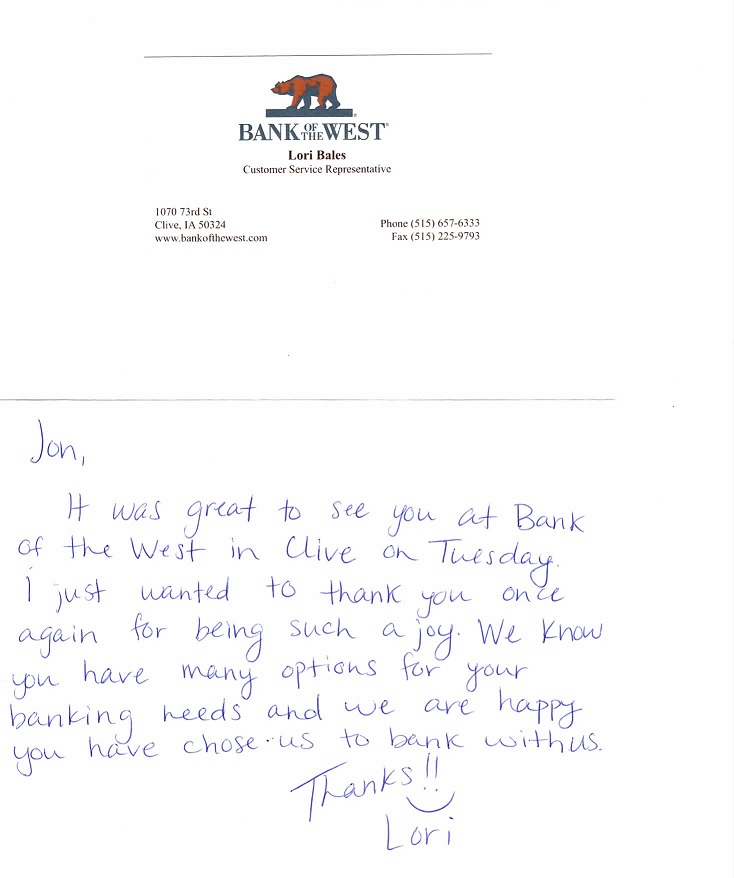 BANK OF THE WEST
Lori Bales
Customer Service Representative
1070 73rd St
Clive, IA 50324
www.bankofthewest.com
Phone (515) 657-6333
Fax (515) 225-9793
Jon,
It was great to see you at Bank
of the West in Clive on Tuesday.
I just wanted to thank you once
again for being such a joy. We know
you have many options for your
banking needs and we are happy
you have chose us to bank with us.
Thanks!!
Lori